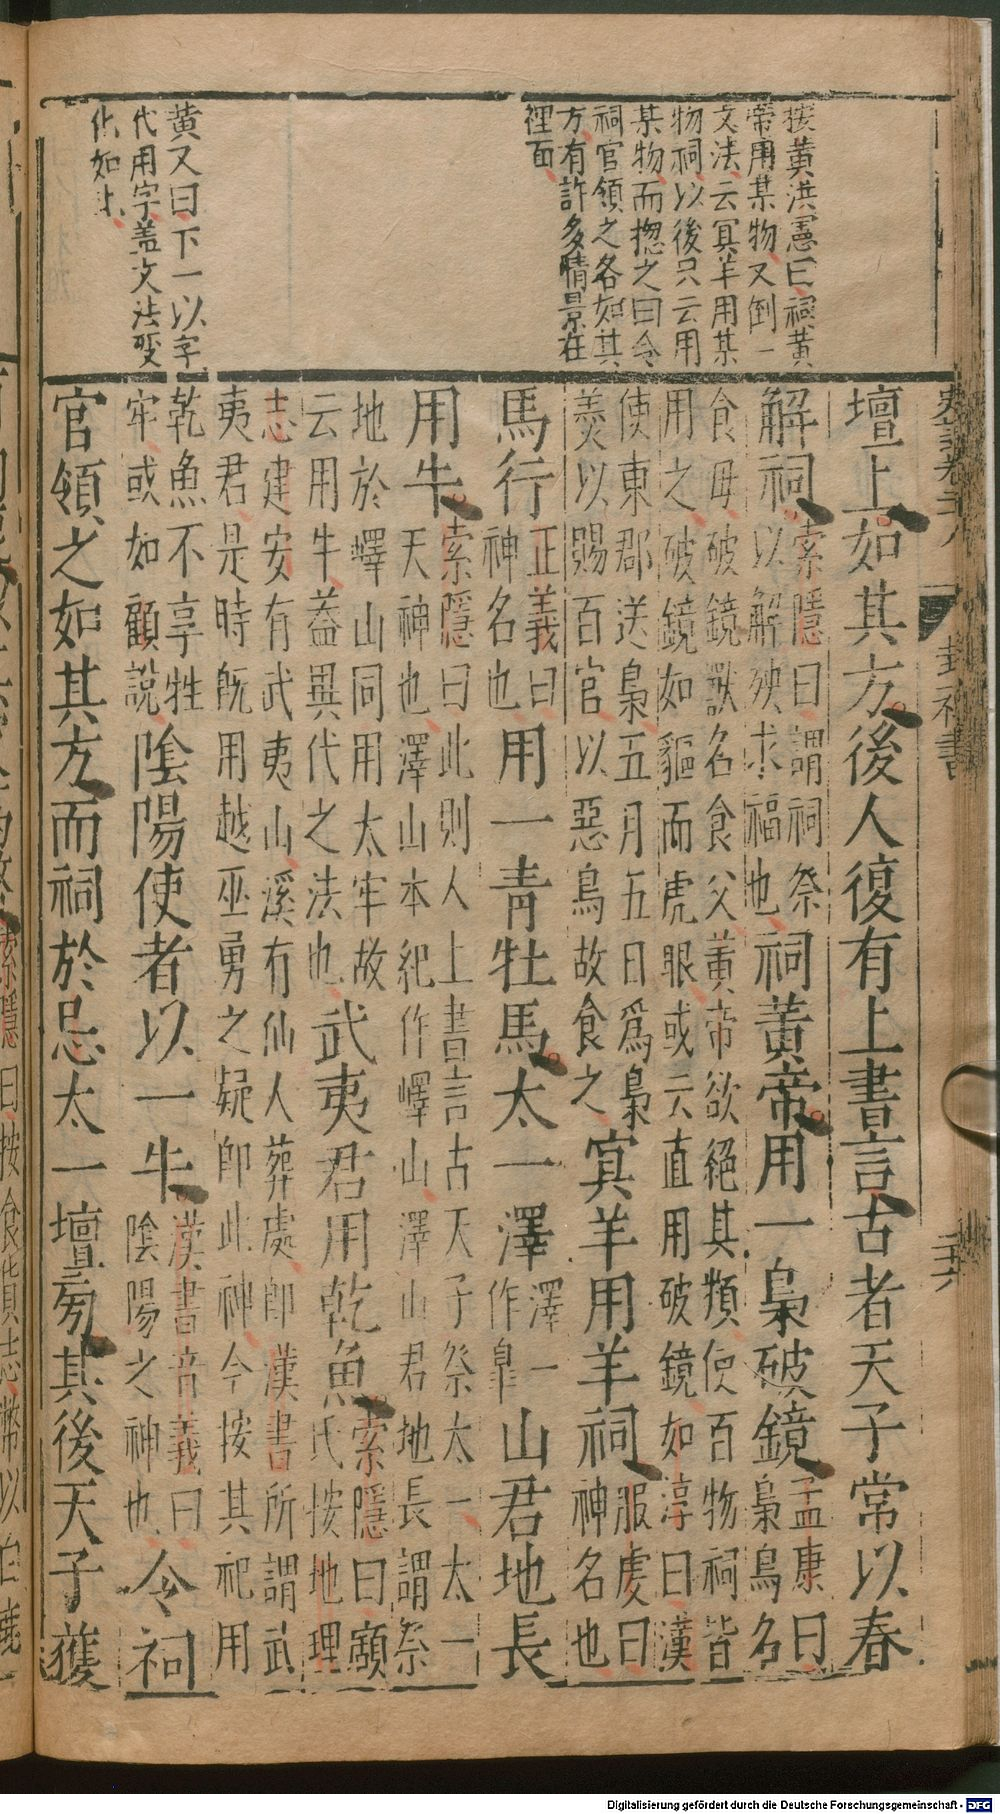 按黃洪憲曰祠黃
帝用某物又倒一
文法云冥羊用某
物祠以後只云用
某物而摠之曰令
祠官領之各如其
方有許多情景在
裡面
黃又曰下一以字
代用字盖文法變
化如此
史記卷二十八 封禪書 二十六
壇上如其方後人復有上書言古者天子常以春
解祠索隱曰謂祠祭以解殃求福也祠黃帝用一梟破鏡孟康曰梟鳥名
食母破鏡獸名食父黃帝欲絕其類使百物祠皆
用之破鏡如貙而虎眼或云直用破鏡如淳曰漢
使東郡送梟五月五日爲梟羹以賜百官以惡鳥故食之冥羊用羊祠服虔曰神名也
馬行正義曰神名也用一青牡馬太一澤澤一作皐山君地長
用牛索隱曰此則人上書言古天子祭太一太一天神也澤山本紀作嶧山澤山君地長謂祭
地於嶧山同用太牢故云用牛葢異代之法也武夷君用乾魚索隱曰顧氏按地理
志建安有武夷山溪有仙人葬處即漢書所謂武
夷君是時旣用越巫勇之疑即此神今按其祀用
乾魚不享牲牢或如顧說陰陽使者以一牛漢書音義曰陰陽之神也令祠
官領之如其方而祠於忌太一壇旁其後天子獲
索隱曰按食貨志幣以白鹿
Digitalisierung gefördert durch die Deutsche Forschungsgemeinschaft - DFG